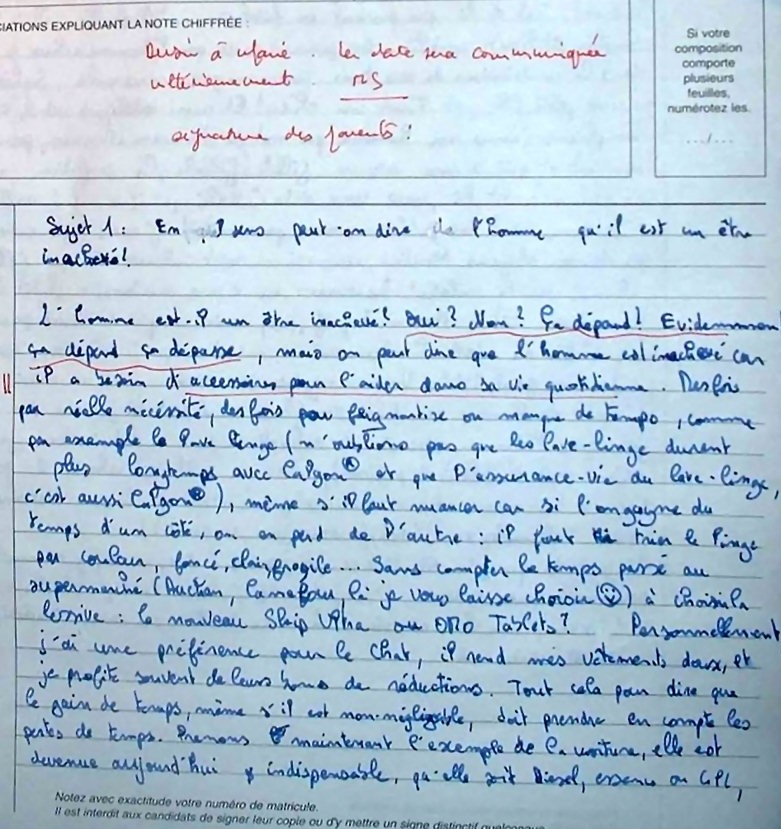 CIATIONS EXPLIQUANT LA NOTE CHIFFRÉE :
Devoir à refaire. La date sera communiquée
ultérieurement. MS
signature des parents :
Si votre
composition
comporte
plusieurs
feuilles,
numérotez les.
.../...
Sujet 1 : En ql sens peut-on dire de l'homme qu'il est un être
inachevé!
L'homme est-il un être inachevé? Oui? Non? Ça dépend! Evidemment
ça dépend ça dépasse, mais on peut dire que l'homme est inachevé car
il a besoin d'accessoires pour l'aider dans sa vie quotidienne. Des fois
par réelle nécessité, des fois par feignantise ou manque de temps, comme
par exemple le lave linge (n'oublions pas que les lave-linge durent
plus longtemps avec Calgon® et que l'assurance-vie du lave-linge,
c'est aussi Calgon®), même s'il faut nuancer car si l'on gagne du
temps d'un côté, on en perd de l'autre : il faut trier le linge
par couleur, foncé, clair, fragile... Sans compter le temps passé au
supermarché (Auchan, Carrefour là je vous laisse choisir ☺) à choisir la
lessive : le nouveau Skip Ultra ou OMO Tablets? Personnellement
j'ai une préférence pour le Chat, il rend mes vêtements doux, et
je profite souvent de leurs bons de réductions. Tout cela pour dire que
le gain de temps, même s'il est non-négligeable, doit prendre en compte les
pertes de temps. Prenons maintenant l'exemple de la voiture, elle est
devenue aujourd'hui indispensable, qu'elle soit Diesel, essence ou GPL,
Notez avec exactitude votre numéro de matricule.
Il est interdit aux candidats de signer leur copie ou d'y mettre un signe distinctif quelconque